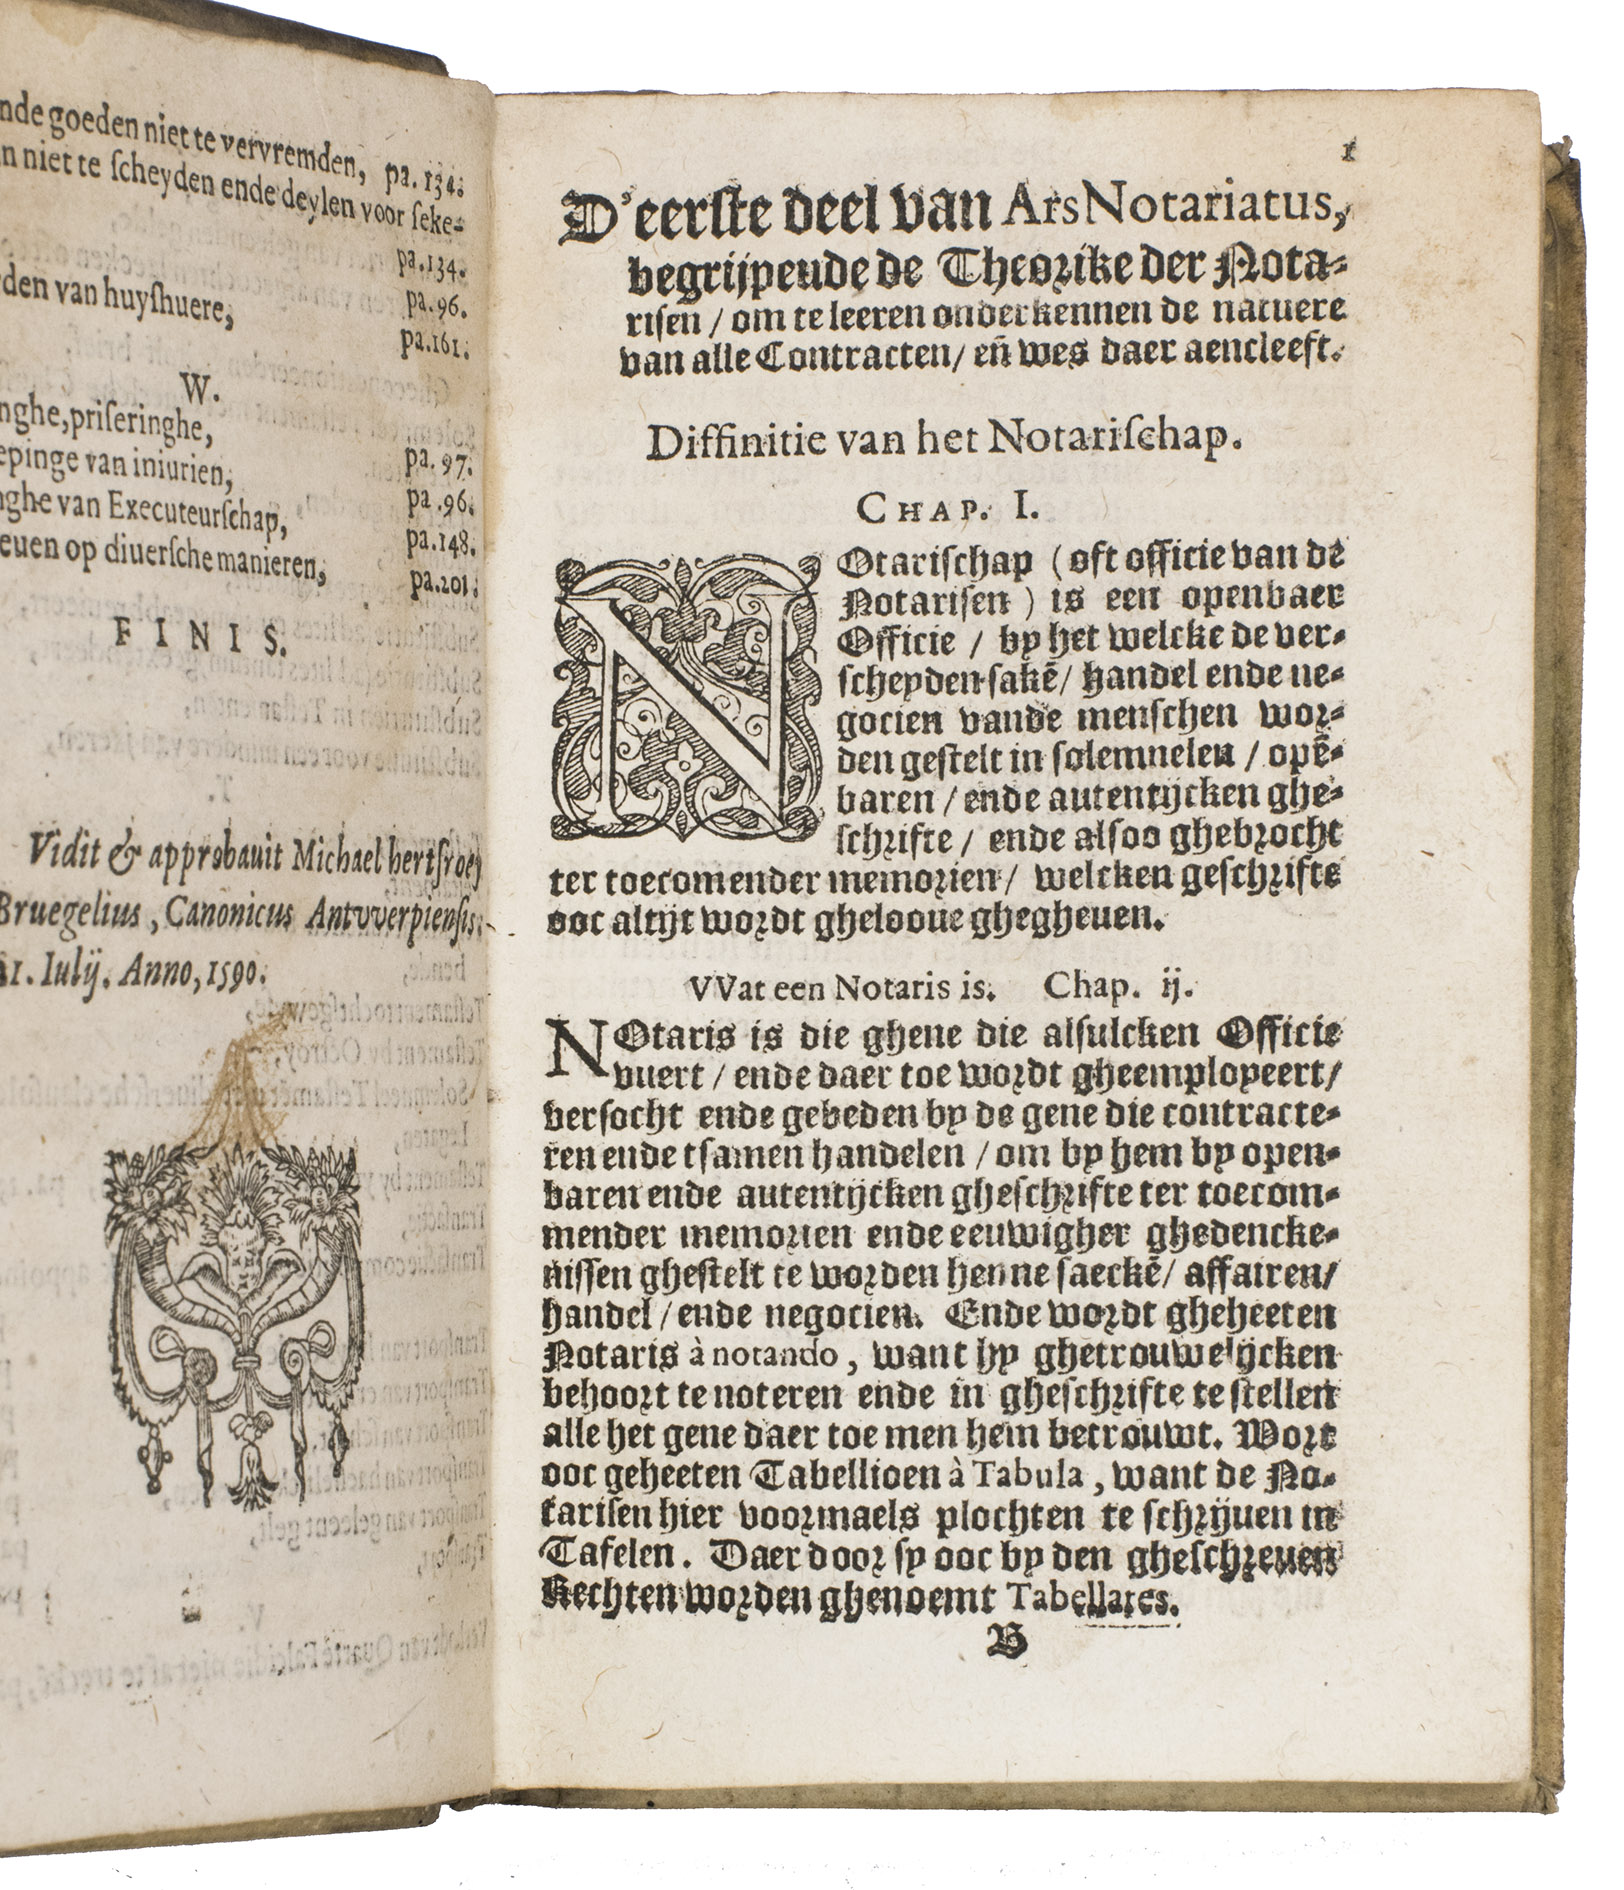 nde goeden niet te vervremden, pa. 134.
n niet te ſcheyden ende deylen voor ſeke-
pa. 134.
rden van huyſhuere, pa. 96.
pa. 161.
W.
nghe, priſeringhe, pa. 97.
epinge van iniurien, pa. 96.
nghe van Executeurſchap, pa. 148.
euen op diuerſche manieren, pa. 201.
FINIS.
Vidit & approbauit Michael hertſroey
Bruegelius, Canonicus Antvverpienſis.
21. Iulij. Anno, 1590.
1
D'eerſte deel van Ars Notariatus,
begrijpende de Theorike der Nota-
riſen / om te leeren onderkennen de natuere
van alle Contracten / eñ wes daer aencleeft.
Diffinitie van het Notariſchap.
CHAP. I.
NOtariſchap (oft officie van de
Notariſen) is een openbaer
Officie / by het welcke de ver-
ſcheyden ſakē / handel ende ne-
gocien vande menſchen wor-
den geſtelt in ſolemnelen / opē-
baren / ende autentijcken ghe-
ſchrifte / ende alſoo ghebrocht
ter toecomender memorien / welcken geſchrifte
ooc altijt wordt ghelooue ghegheuen.
VVat een Notaris is. Chap. ij.
NOtaris is die ghene die alſulcken Officie
vuert / ende daer toe wordt gheemployeert /
verſocht ende gebeden by de gene die contracte-
ren ende tſamen handelen / om by hem by open-
baren ende autentijcken gheſchrifte ter toecom-
mender memorien ende eeuwigher ghedencke-
niſſen gheſtelt te worden henne ſaeckē / affairen /
handel / ende negocien. Ende wordt gheheeten
Notaris à notando, want hy ghetrouwelijcken
behoort te noteren ende in gheſchrifte te ſtellen
alle het gene daer toe men hem betrouwt. Wort
ooc geheeten Tabellioen à Tabula, want de No-
tariſen hier voormaels plochten te ſchrijuen in
Tafelen. Daer door ſy ooc by den gheſchreuen
Rechten worden ghenoemt Tabellares.
B